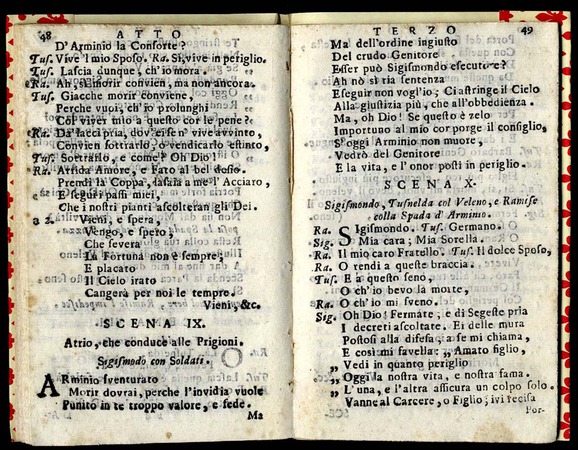 48 ATTO
D'Arminio la Conforte?
Tus. Vive 'l mio Sposo. Ra. Sì, vive in periglio.
Tus. Lascia dunque, ch'io mora.
Ra. Ah, sì morir convien, ma non ancora.
Tus. Giacche morir conviene,
Perche vuoi, ch'io prolunghi
Col viver mio a questo cor le pene?
Ra. Da' lacci pria, dov' ei sen' vive avvinto,
Convien sottrarlo, o vendicarlo estinto,
Tus. Sottrarlo, e come? Oh Dio!
Ra. Arrida Amore, e Fato al bel desio.
Prendi la Coppa, lascia a me l' Acciaro,
E segui i passi miei,
Che i nostri pianti ascolteran gli Dei.
a 2. Vieni, e spera,
Vengo, e spero;
Che severa
La Fortuna non è sempre;
E placato
Il Cielo irato
Cangerà per noi le tempre.
Vieni, &c.
SCENA IX.
Atrio, che conduce alle Prigioni.
Sigismodo con Soldati.
Arminio sventurato
Morir dovrai, perche l'invidia vuole
Punito in te troppo valore, e fede.
Ma
TERZO 49
Ma dell'ordine ingiusto
Del crudo Genitore
Esser può Sigismondo esecutore?
Ah nò sì ria sentenza
Eseguir non vogl'io; Ci astringe il Cielo
Alla giustizia più, che all'obbedienza.
Ma, oh Dio! Se questo è zelo
Importuno al mio cor porge il consiglio,
S' oggi Arminio non muore,
Vedrò del Genitore
E la vita, e l'onor posti in periglio.
SCENA X.
Sigismondo, Tusnelda col Veleno, e Ramise
colla Spada d' Arminio.
Ra. Sigismondo. Tus. Germano.
Sig. Mia cara; Mia Sorella.
Ra. Il mio caro Fratello. Tus. Il dolce Sposo,
Ra. O rendi a queste braccia.
Tus. E a questo seno,
O ch'io bevo la morte,
Ra. O ch'io mi sveno.
Sig. Oh Dio! Fermate; e di Segeste pria
I decreti ascoltate. Ei delle mura
Postosi alla difesa; a se mi chiama,
E così mi favella: „ Amato figlio,
„ Vedi in quanto periglio
„ Oggi la nostra vita, e nostra fama.
„ L' una, e l'altra assicura un colpo solo.
Vanne al Carcere, o Figlio; ivi recisa
Por-